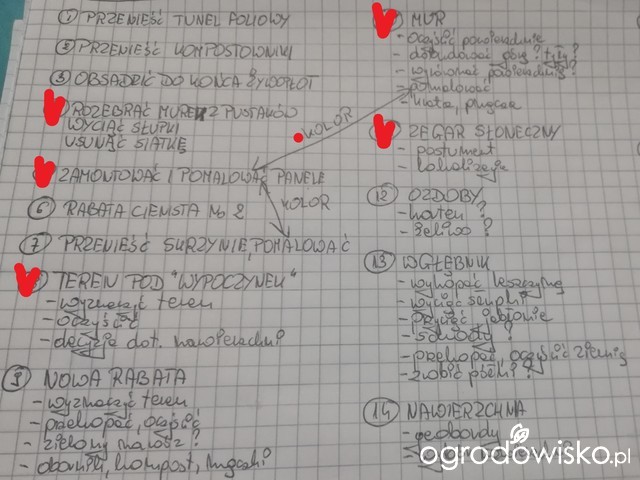 ① PRZENIEŚĆ TUNEL FOLIOWY
② PRZENIEŚĆ KOMPOSTOWNIKI
③ OBSADZIĆ DO KOŃCA ŻYWOPŁOT
ROZEBRAĆ MUREK Z PUSTAKÓW
WYCIĄĆ SŁUPKI
USUNĄĆ SIATKĘ
KOLOR
ZAMONTOWAĆ I POMALOWAĆ PANELE
KOLOR
⑥ RABATA CIENISTA No 2
⑦ PRZENIEŚĆ SKRZYNIE, POMALOWAĆ
TEREN POD "WYPOCZYNEK"
- wyznaczyć teren
- oczyścić
- decyzja dot. nawierzchni
⑨ NOWA RABATA
- wyznaczyć teren
- przekopać, oczyścić
- zielony nawóz?
- obornik, kompost,
MUR
- oczyścić powierzchnię
- dobudować górę? tył?
- wyrównać powierzchnię?
- pomalować
ZEGAR SŁONECZNY
- postument
- lokalizacja
⑫ OZDOBY
- korten?
- żeliwo?
⑬ WGŁĘBNIK
- wykopać leszczynę
- wyciąć
- przyciąć jabłonie
- schody?
- przekopać, oczyścić ziemię
- zrobić półki?
⑭ NAWIERZCHNIA
- geobordy
ogrodowisko.pl